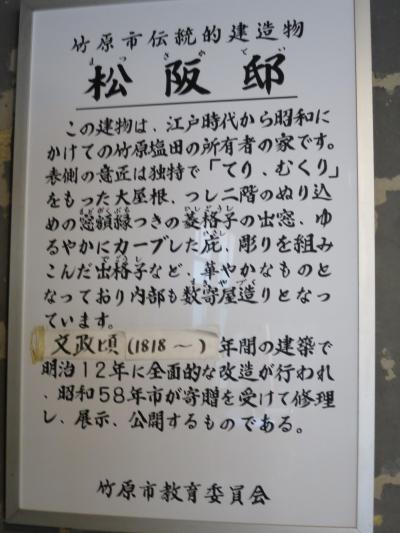 竹原市伝統的建造物
まつさかてい
松阪邸
この建物は、江戸時代から昭和に
かけての竹原塩田の所有者の家です。
表側の意匠は独特で「てり、むくり」
をもった大屋根、つし二階のぬり込
めの窓額縁つきの菱格子の出窓、ゆ
るやかにカーブした庇、彫りを組み
こんだ出格子など、華やかなものと
なっており内部も数寄屋造りとなっ
ています。
文政頃(1818〜)年間の建築で
明治12年に全面的な改造が行われ
、昭和58年市が寄贈を受けて修理
し、展示、公開するものである。
竹原市教育委員会